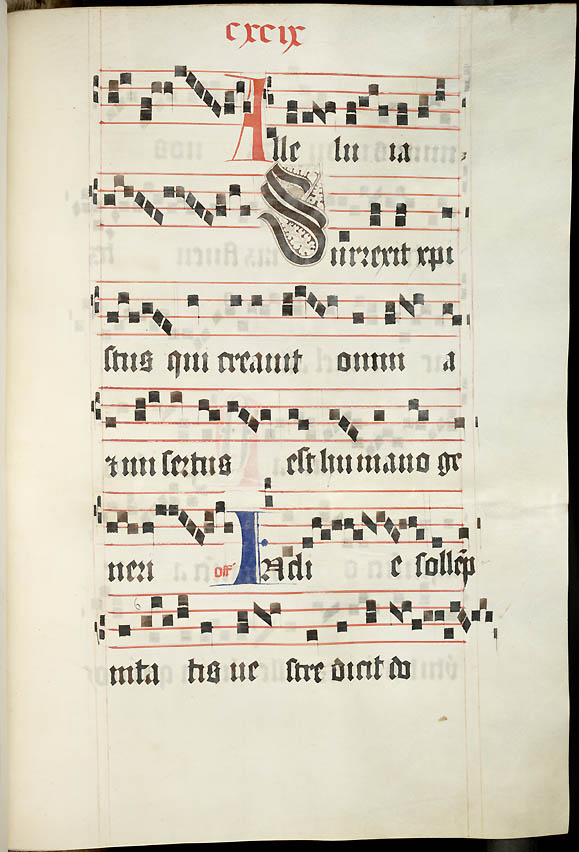 cxcix
Alle lu ia
Surrexit xpi
stus qui creauit omni a
⁊ mi sertus est humano ge
neri off' In di e sollēp
nita tis ue stre dicit do